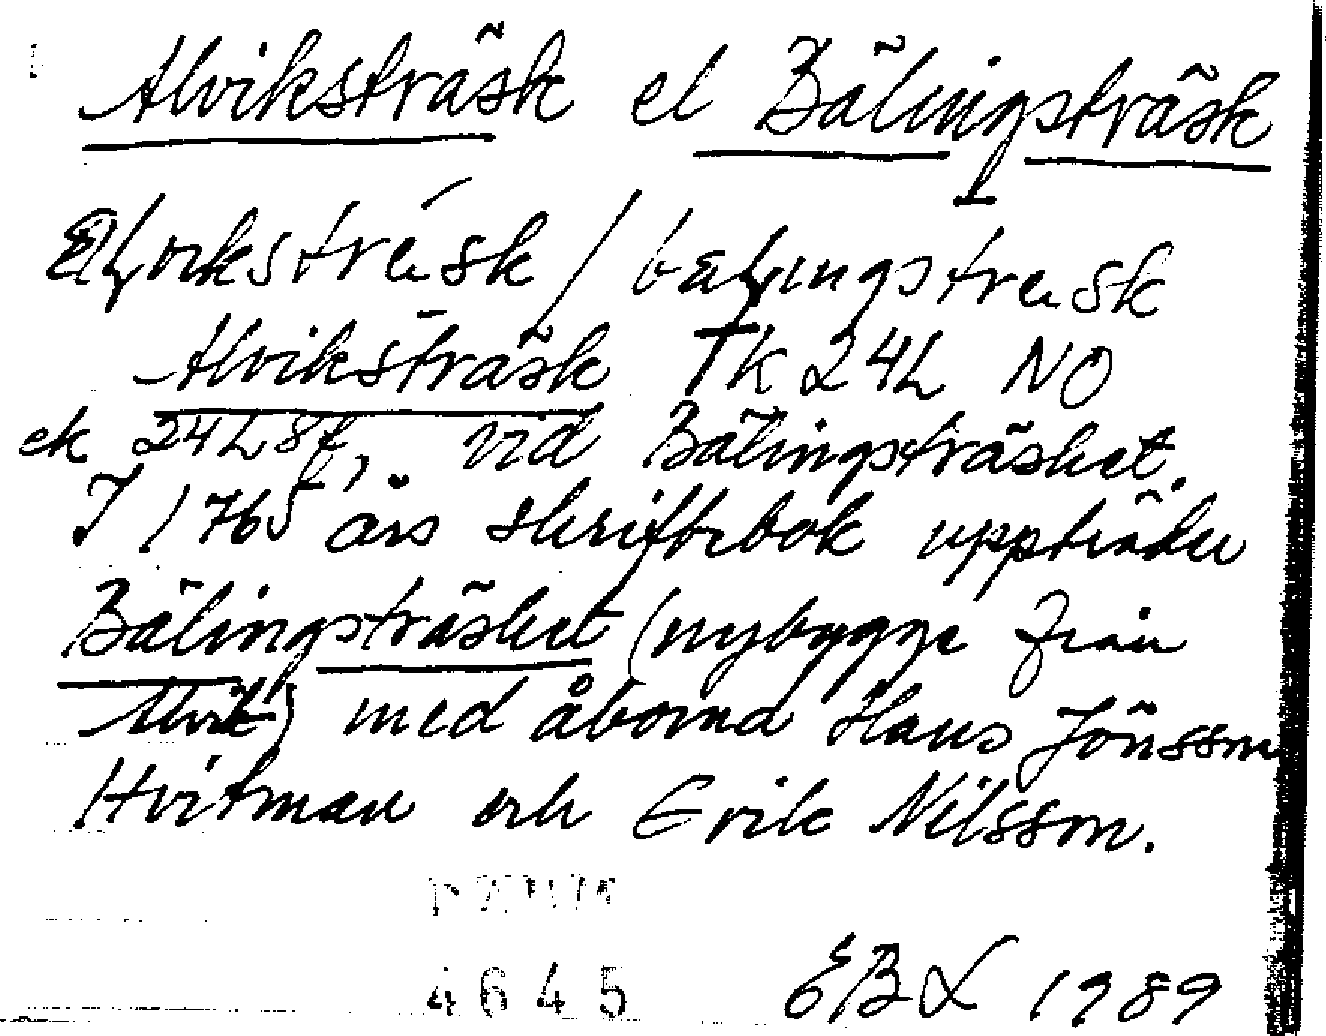 Alviksträsk el Bälingsträsk
Alviksträsk TK 24L NO
ek 24L 8f, vid Bälingsträsket.
I 1765 års skriftebok uppträder
Bälingsträsket (nybygge från
Alvik) med åborna Hans Jönsson
Hvitman och Erik Nilsson.
4645
EBL 1989